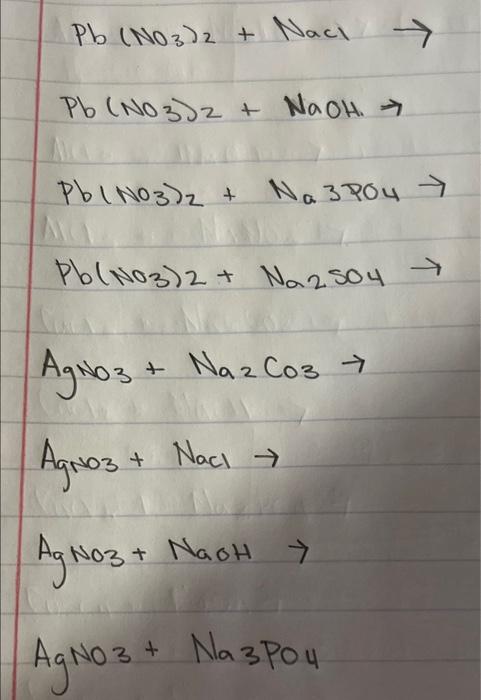 Pb (NO3)2 + Nacl →
Pb (NO3)2 + NaOH →
Pb(NO3)2 + Na3PO4 →
Pb(NO3)2 + Na2SO4 →
AgNO3 + Na2Co3 →
AgNO3 + Nacl →
AgNO3 + NaOH →
AgNO3 + Na3PO4